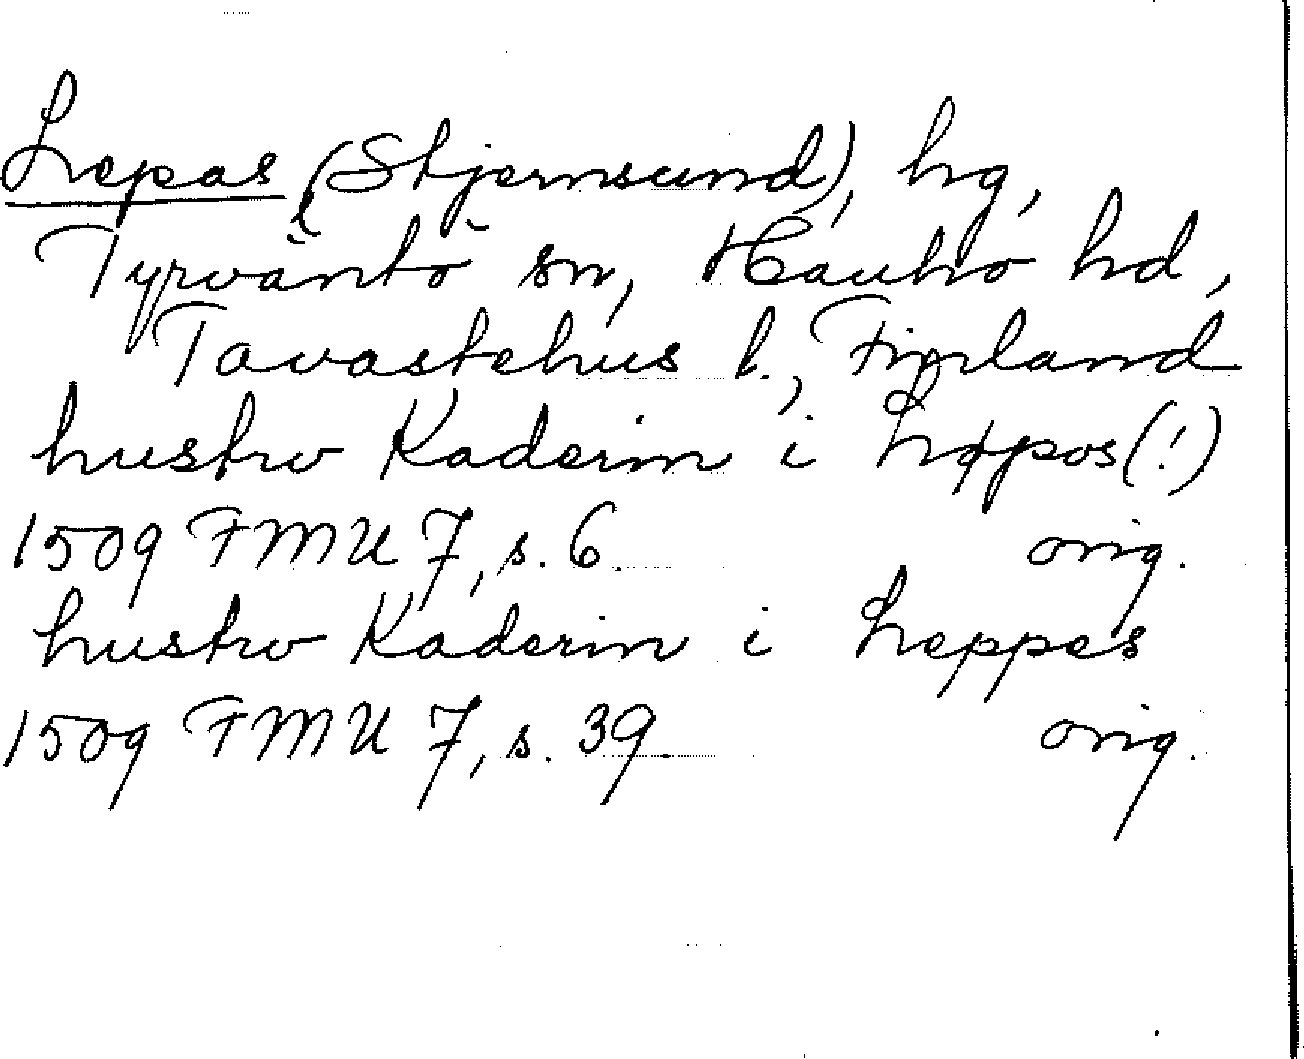 Lepas (Stjernsund), hg,
Tyrväntö sn, Hauho hd,
Tavastehus l., Finland
hustro Kaderin i Leppos(!)
1509 FMU 7, s. 6 orig.
hustro Kaderin i Leppes
1509 FMU 7, s. 39 orig.